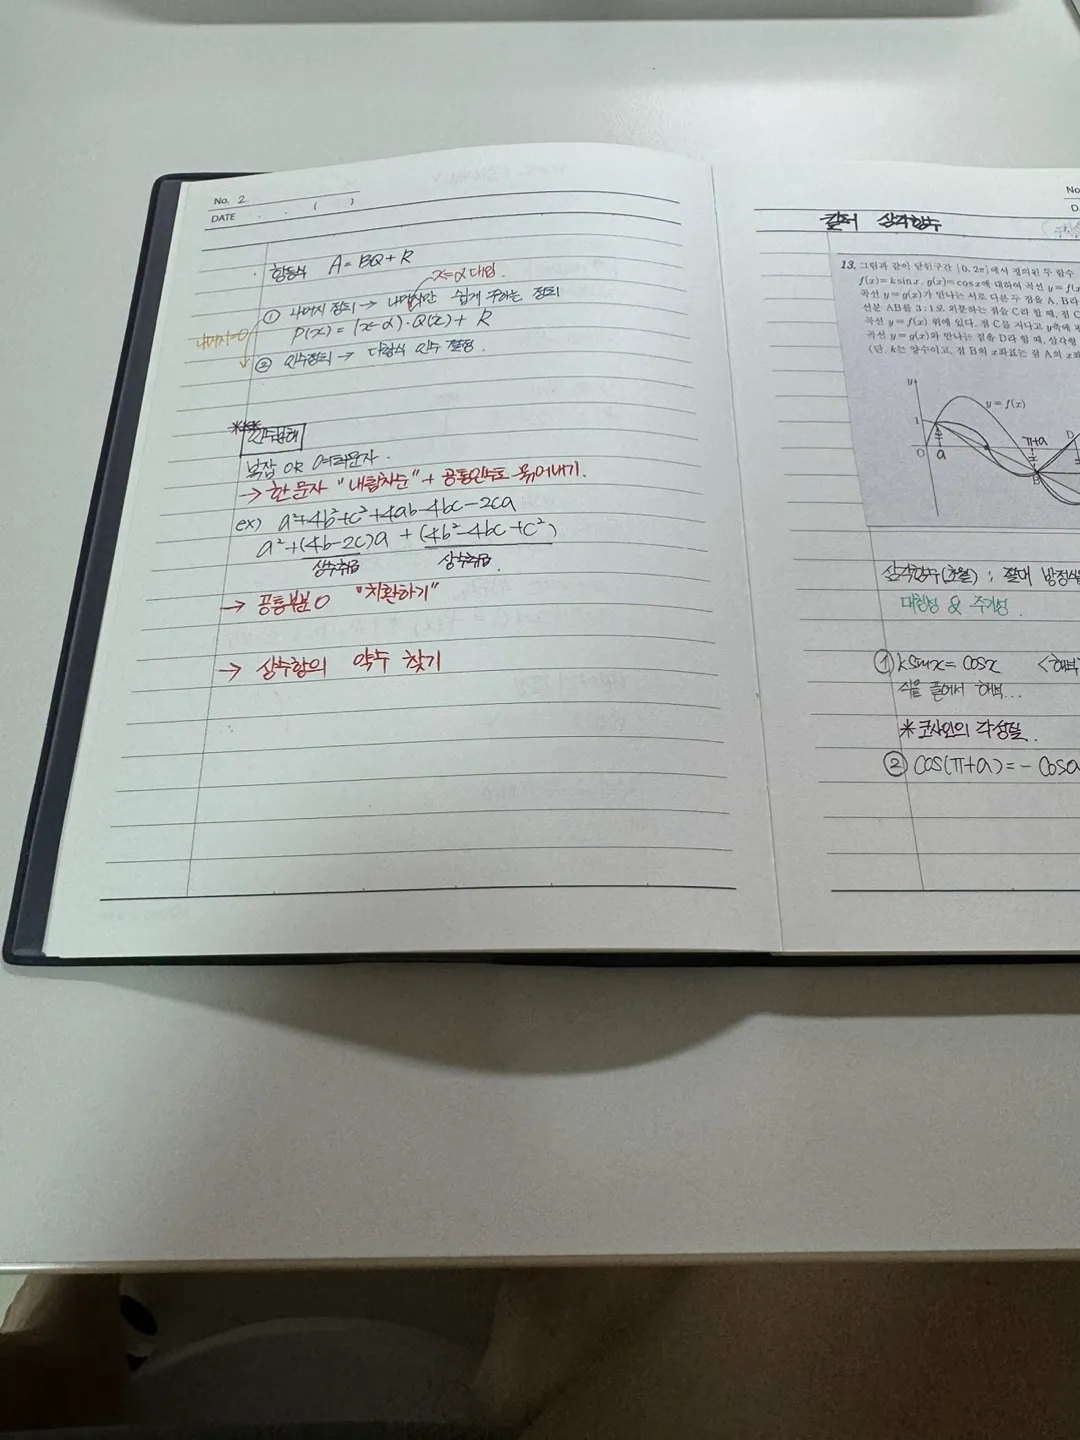 No. 2
DATE . . ( )
항등식 A = BQ + R
x=α 대입.
① 나머지 정리 → 나머지만 쉽게 구하는 정리
P(x) = (x-α)·Q(x) + R
나머지=0
② 인수정리 → 다항식 인수 결정.
인수분해
복잡 OR 여러문자.
→ 한 문자 "내림차순" + 공통인수로 묶어내기.
ex) a²+4b²+c²+4ab-4bc-2ca
a²+(4b-2c)a + (4b²-4bc+c²)
상수취급 상수취급.
→ 공통부분 O "치환하기"
→ 상수항의 약수 찾기
No
D
킬러 삼각함수
13. 그림과 같이 닫힌구간 [0, 2π]에서 정의된 두 함수
f(x)=k sin x, g(x)=cos x에 대하여 곡선 y=f(x
곡선 y=g(x)가 만나는 서로 다른 두 점을 A, B라
선분 AB를 3:1로 외분하는 점을 C라 할 때, 점 C
곡선 y=f(x) 위에 있다. 점 C를 지나고 y축에 평
곡선 y=g(x)와 만나는 점을 D라 할 때, 삼각형
(단, k는 양수이고, 점 B의 x좌표는 점 A의 x좌
y
y=f(x)
1
π+a
D
O a
B
삼각함수(초월) : 절대 방정식
대칭성 & 주기성.
① ksinx = cosx <해석
식을 풀어서 해석...
*코사인의 각성질.
② cos(π+a) = - cosa